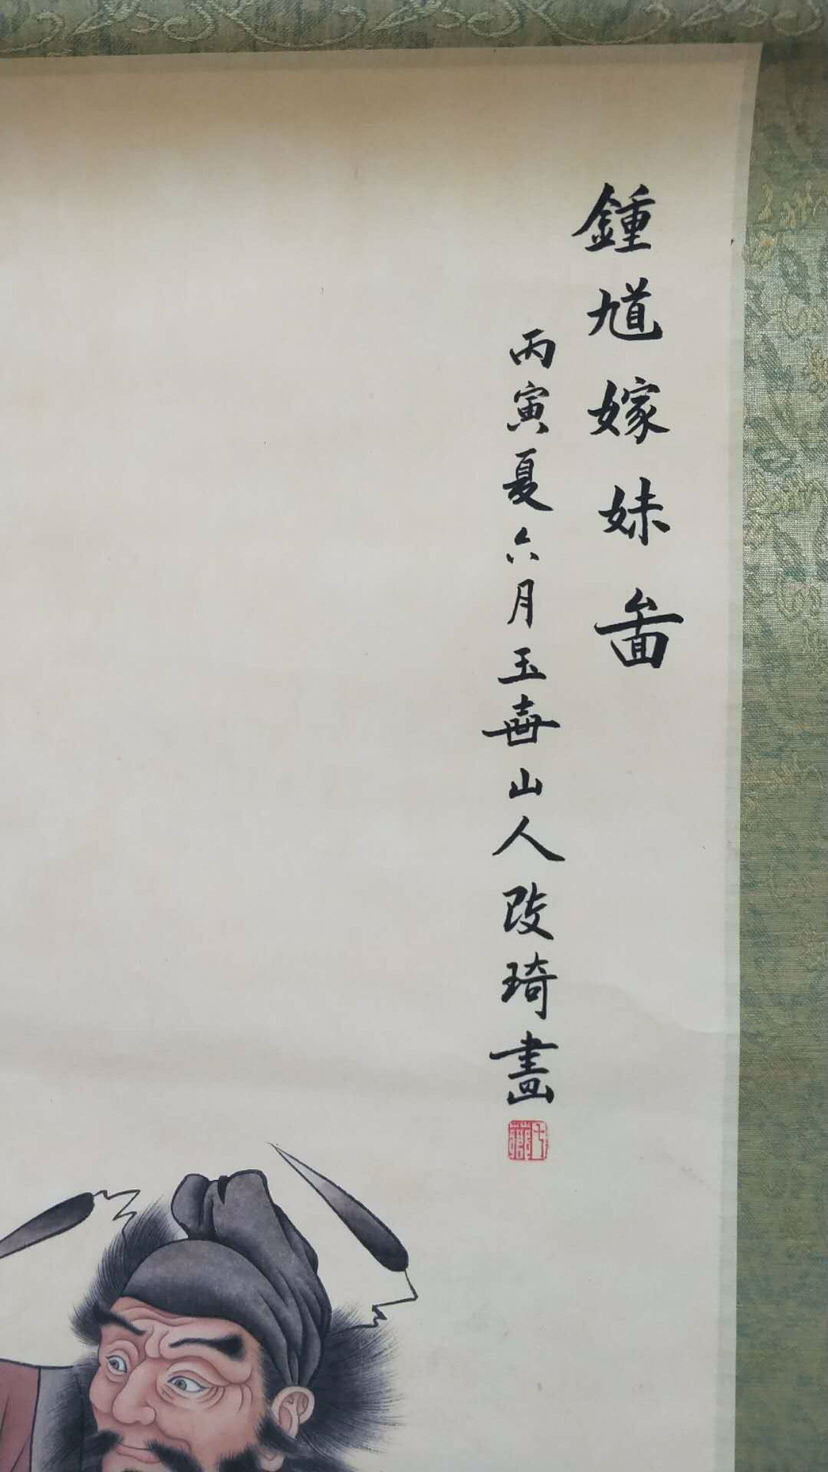 鍾馗嫁妹啚
丙寅夏六月玉壺山人改琦畫